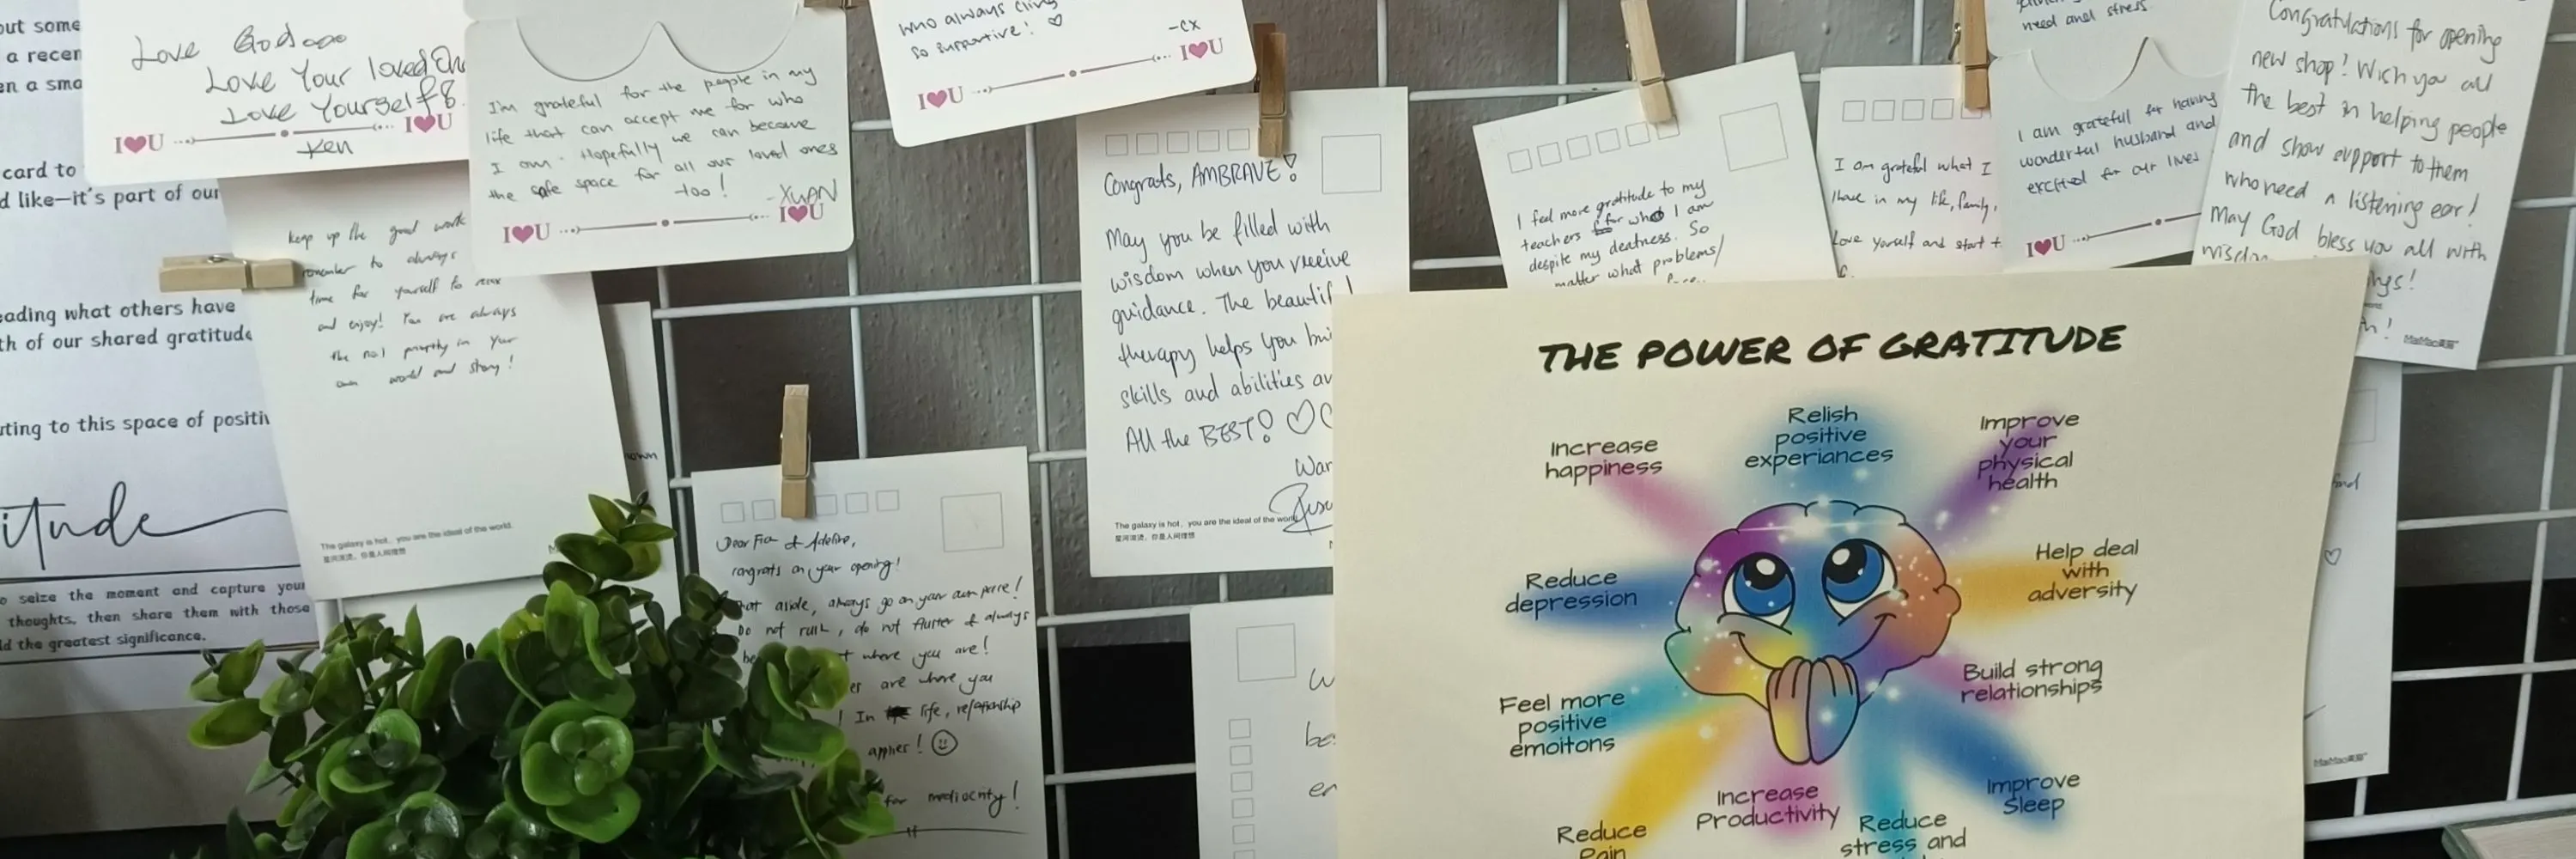 out some
a recen
en a sma
card to
d like—it's part of our
eading what others have
th of our shared gratitude
uting to this space of positiv
itude
o seize the moment and capture your
thoughts, then share them with those
ld the greatest significance.
Love God
Love Your loved
Love Yourself
I♥U I♥U
Ken
keep up the good work
remember to always
time for yourself to
and enjoy! You are always
the no.1 in your
own world and story!
The galaxy is hot, you are the ideal of the world.
星河滚烫，你是人间理想
I'm grateful for the people in my
life that can accept me for who
I am. Hopefully we can become
the safe space for all our loved ones
too!
-XUAN
I♥U I♥U
nown
who always cling
so supportive! ♡
-cx
I♥U I♥U
Dear & Adeline,
congrats on your opening!
aside, always go on your own pace!
Do not rush, do not fluster & always
be t where you are!
are where you
! In life, relationship
applies! ☺
for mediocrity!
Congrats, AMBRAVE!
May you be filled with
wisdom when you receive
guidance. The beautiful
therapy helps you bui
skills and abilities an
All the BEST! ♡
War
The galaxy is hot, you are the ideal of the world.
星河滚烫，你是人间理想
W
be
en
I feel more gratitude to my
teachers for who I am
despite my deafness. So
matter what problems/
I am grateful what I
have in my life, family,
Love yourself and start
need and stress
I am grateful for having
wonderful husband and
excited for our lives
I♥U
Congratulations for opening
new shop! Wish you all
the best in helping people
and show support to them
who need a listening ear!
May God bless you all with
wisdom
ngs!
MaiMao
THE POWER OF GRATITUDE
Increase
happiness
Relish
positive
experiances
Improve
your
physical
health
Reduce
depression
Help deal
with
adversity
Feel more
positive
emoitons
Build strong
relationships
Reduce
Pain
Increase
Productivity
Reduce
stress and
Improve
Sleep
MaiMao